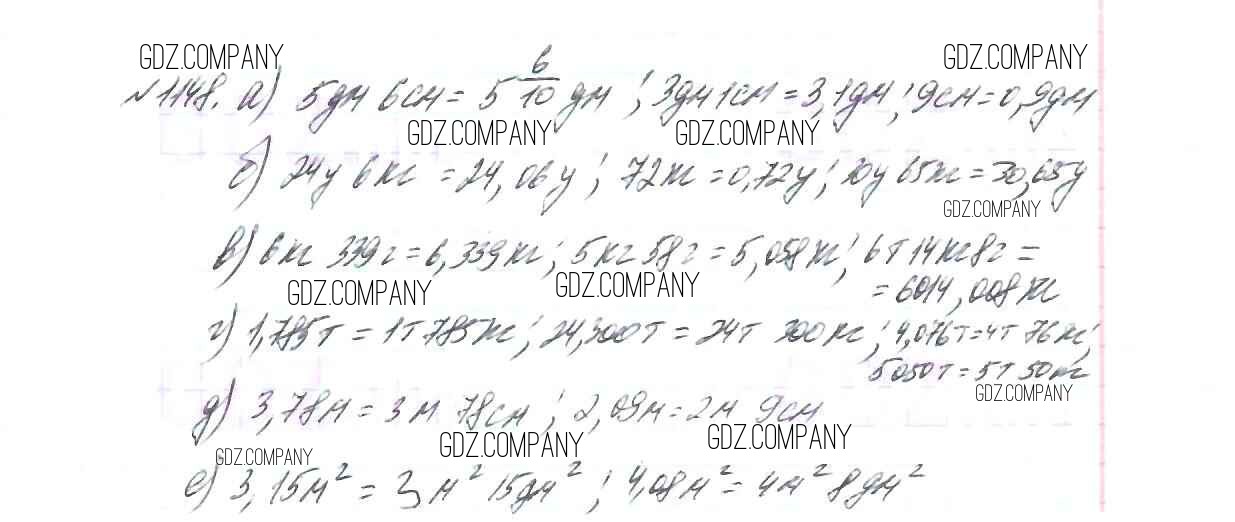 GDZ.COMPANY GDZ.COMPANY
№1148. а) 5дм 6см = 5 6/10 дм ; 3дм 1см = 3,1дм ; 9см = 0,9дм
GDZ.COMPANY GDZ.COMPANY
б) 24ц 6кг = 24,06ц ; 72кг = 0,72ц ; 30ц 65кг = 30,65ц
GDZ.COMPANY
в) 6кг 339г = 6,339кг ; 5кг 58г = 5,058кг ; 6т 14кг 8г =
= 6014,008кг
GDZ.COMPANY GDZ.COMPANY
г) 1,785т = 1т 785кг ; 24,300т = 24т 300кг ; 4,076т = 4т 76кг ;
5050т = 5т 50кг
GDZ.COMPANY
д) 3,78м = 3м 78см ; 2,09м = 2м 9см
GDZ.COMPANY GDZ.COMPANY GDZ.COMPANY
е) 3,15м² = 3м² 15дм² ; 4,08м² = 4м² 8дм²